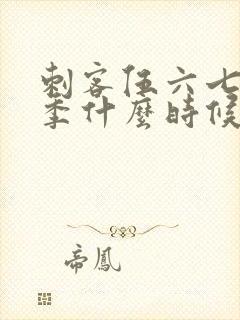 刺客伍六七
季什麼時候
帝鳳